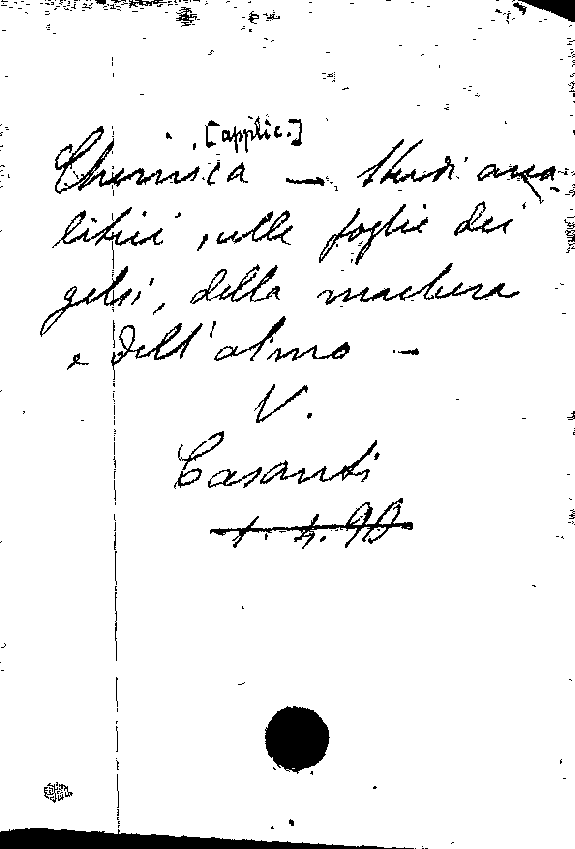 [applic.]
Chimica — Studi ana-
litici sulle foglie dei
gelsi, della maclura
e dell'olmo —
V.
Casanti
1. 4. 9B